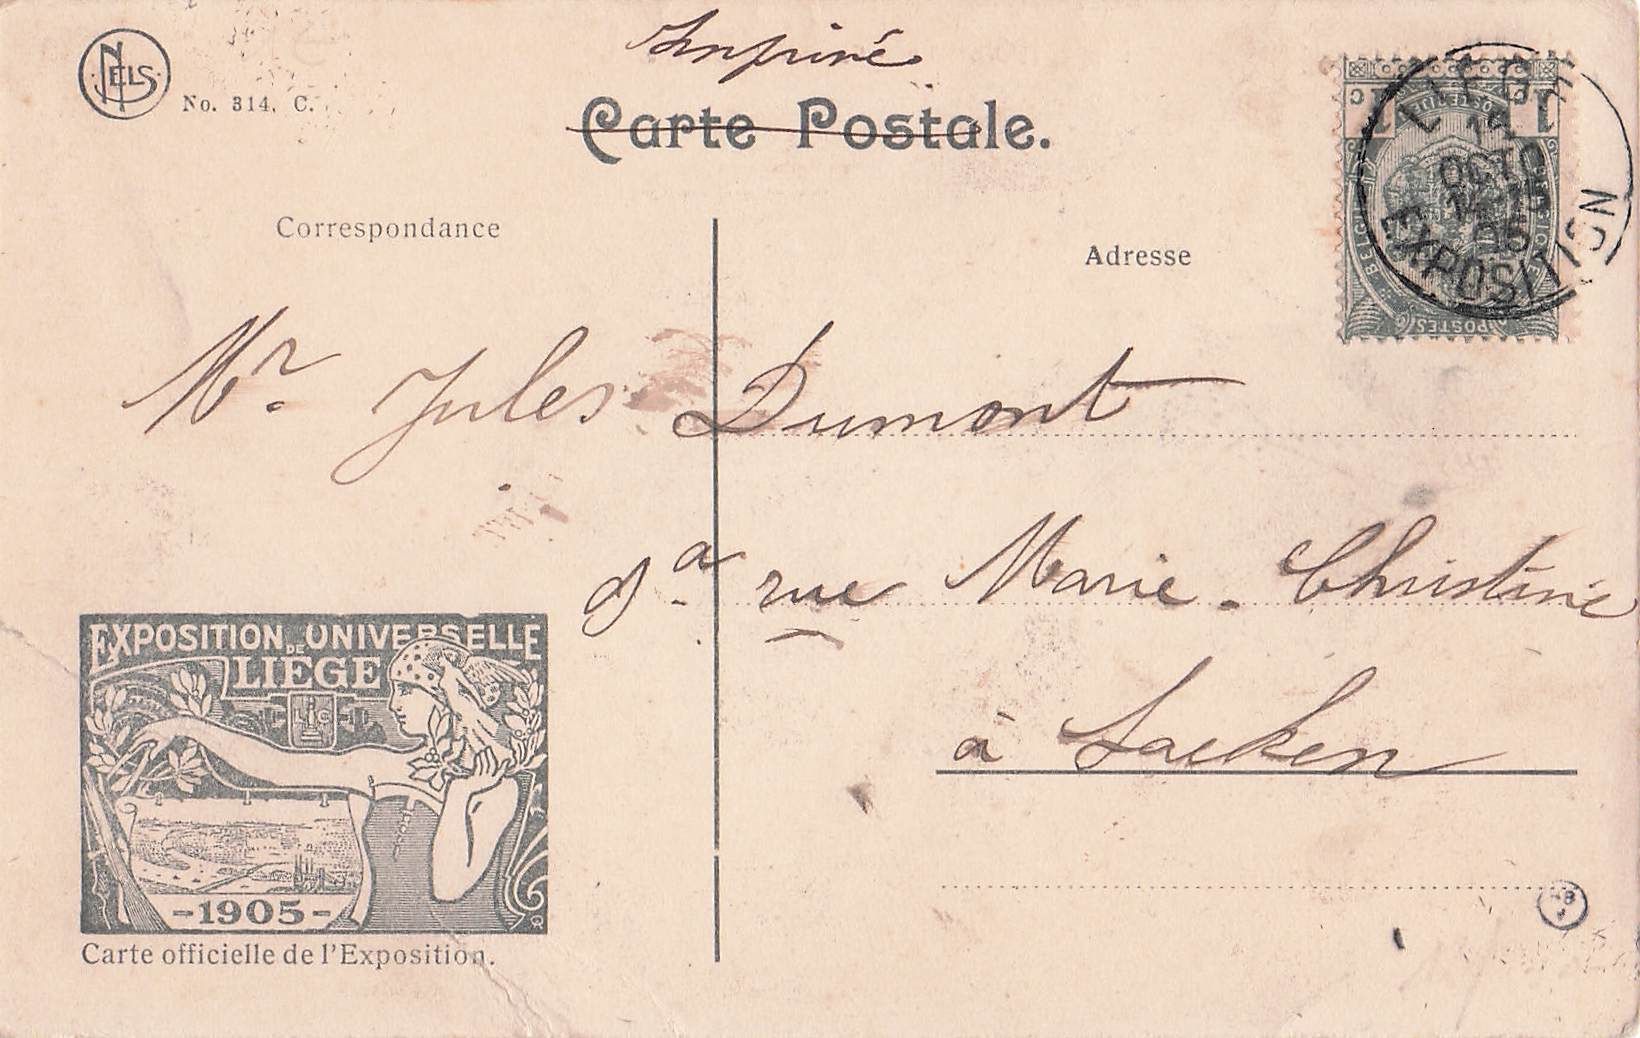 Imprimé
NELS
No. 314. C.
Carte Postale.
LIEGE
14
OCTO
05
EXPOSITION
1 C 1 C
BELGIQUE
POSTES
Correspondance
Adresse
Mr. Jules Dumont
8a. rue Marie-Christine
à Laeken
EXPOSITION UNIVERSELLE
DE
LIÉGE
-1905-
Carte officielle de l'Exposition.